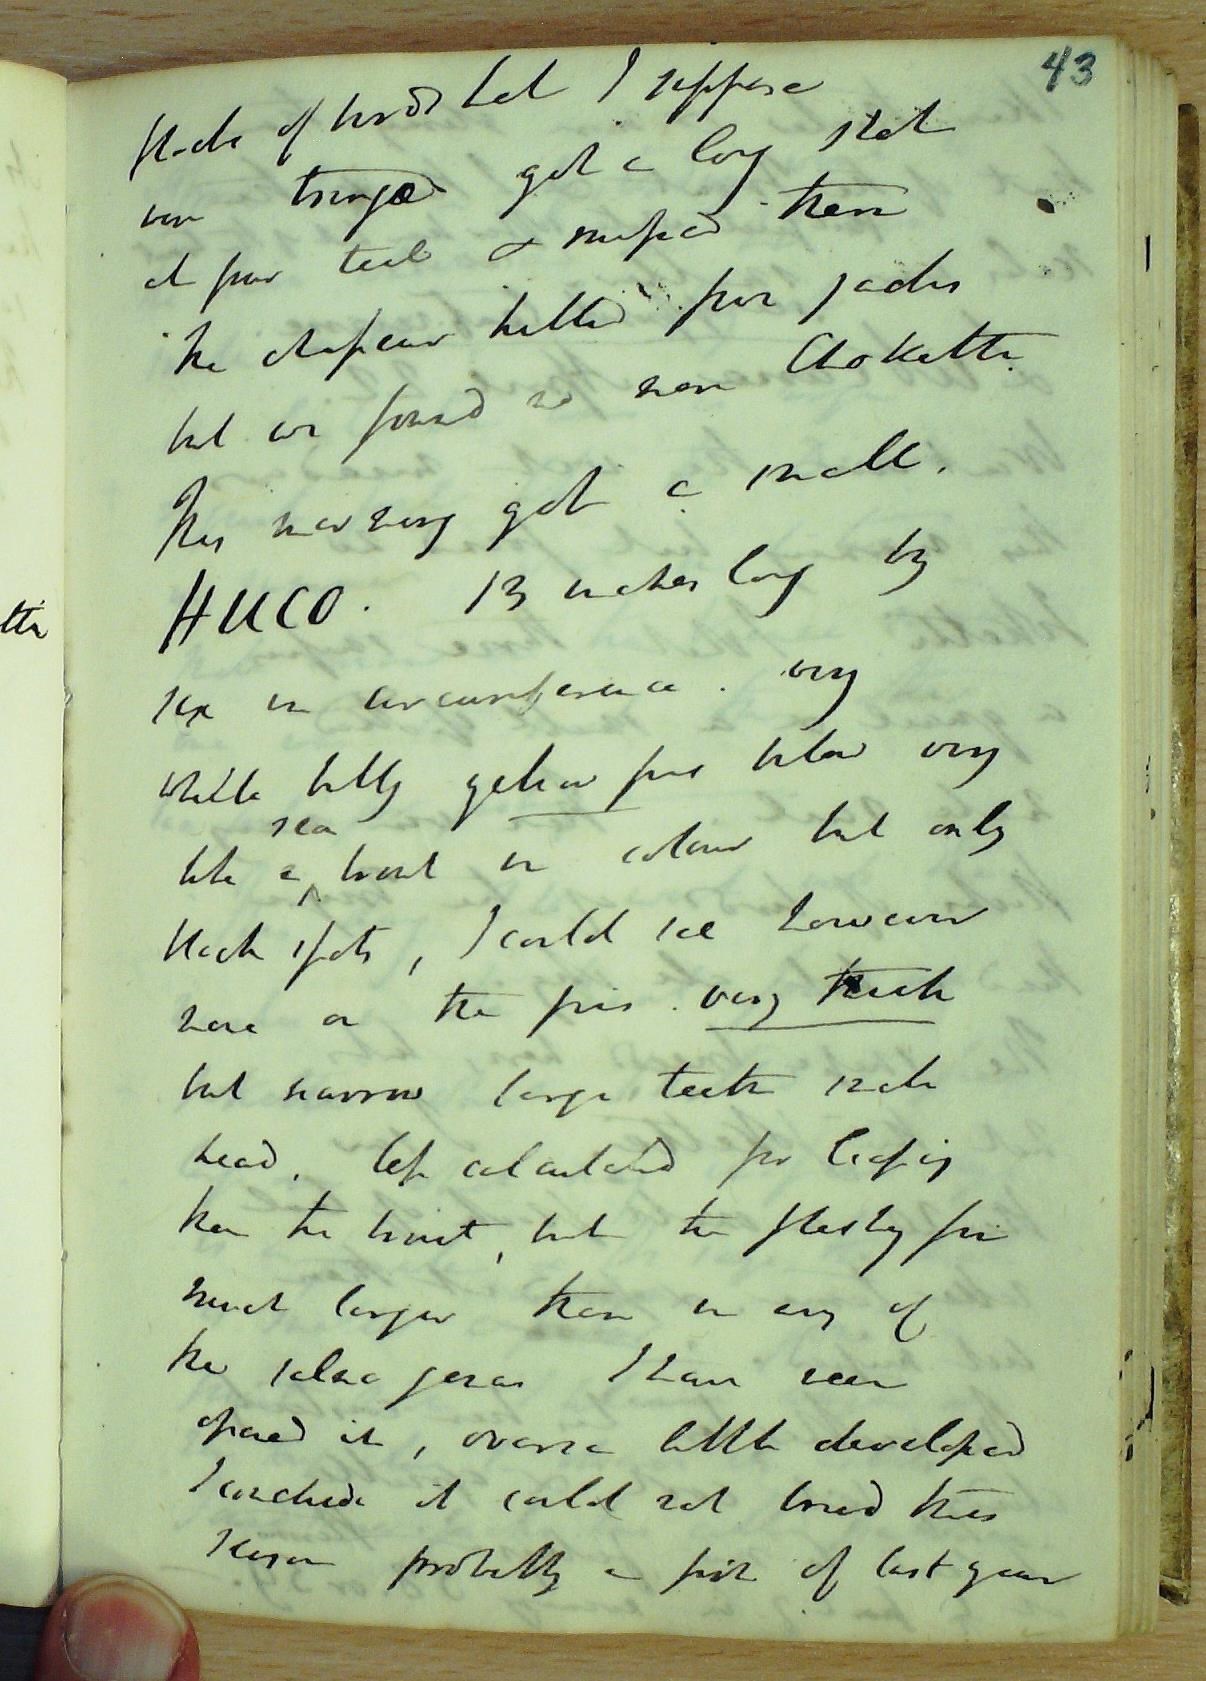 43
flock of birds but I suppose
were tringae got a long shot
at four teal & missed them
the chasseur killed four jacks
but we found no more Chokette.
This morning got a small.
HUCO. 13 inches long by
six in circumference. very
white belly yellow fins below very
sea
like a ^ trout in colour but only
black spots, I could see however
none on the fins. very thick
but narrow large teeth snake
head. less calculated for leaping
than the trout, but the fleshy fin
much larger than in any of
the salmo genus I have seen
opened it, ovaria little developed
I conclude it could not breed this
season probably a fish of last year
tte